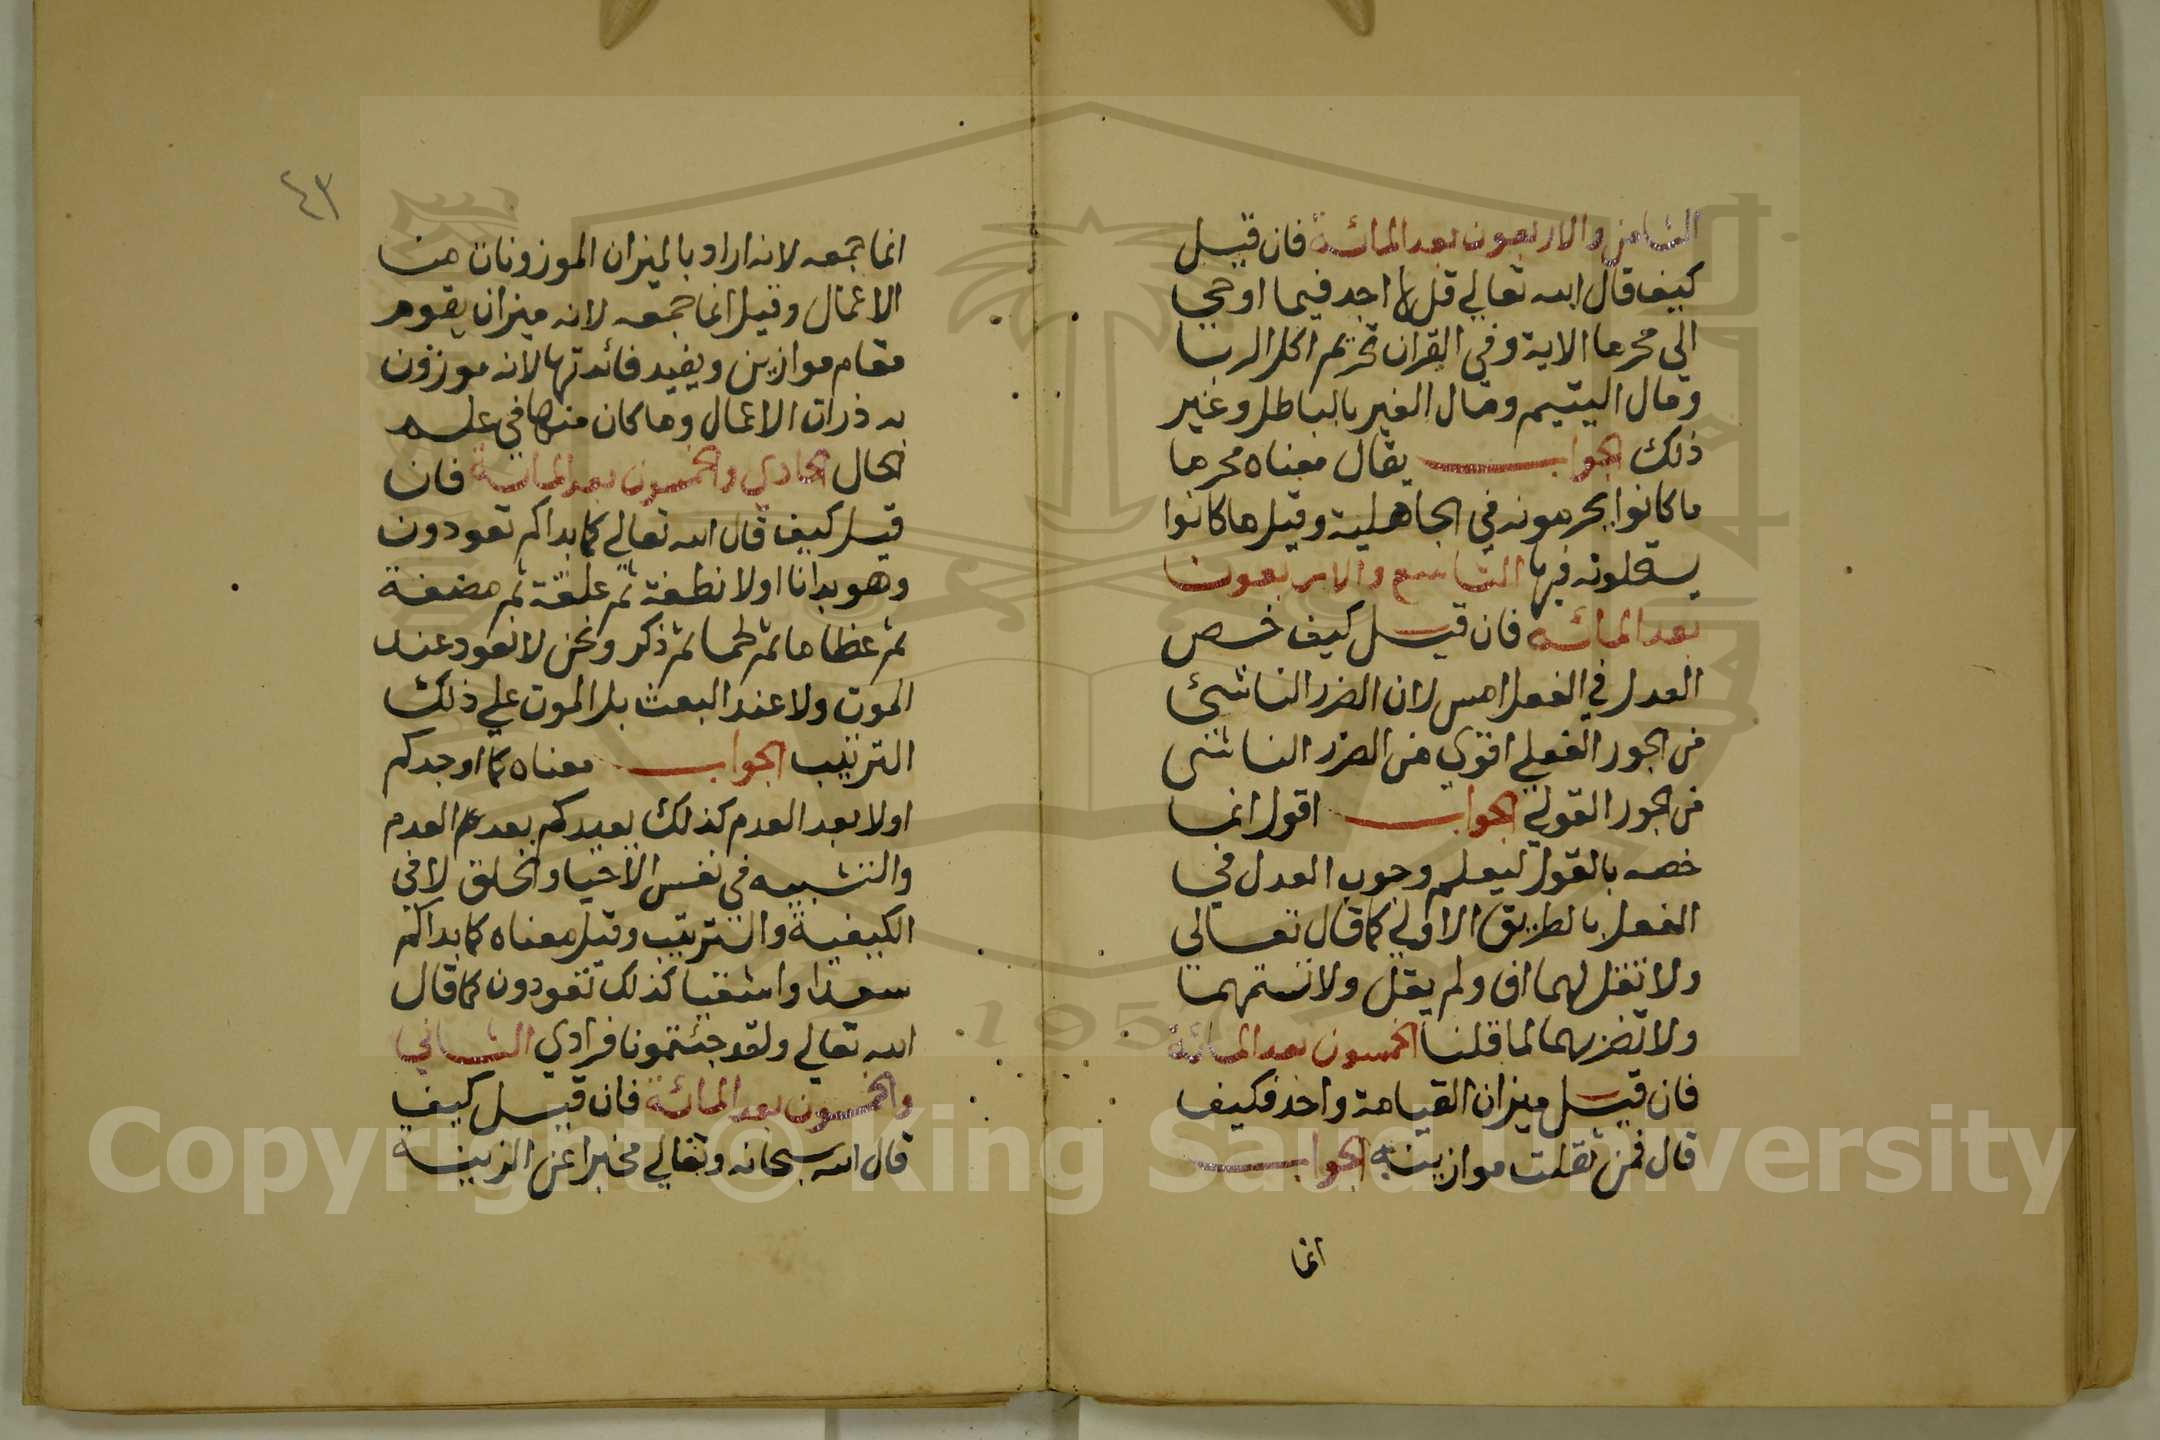 الثامن والاربعون بعد المائة فان قيل
كيف قال الله تعالي قل لا اجد فيما اوحي
الي محرما الاية وفي القران تحريم اكل الربا
ومال اليتيم ومال الغير بالباطل وغير
ذلك الجواب يقال معناه محرما
ما كانوا يحرمونه في الجاهلية وقيل ما كانوا
يستحلونه فيها التاسع والاربعون
بعد المائة فان قيل كيف خص
العدل في الفعل امس لان الضرر الناشئ
من الجور الفعلي اقوي من الضرر الناشى
من الجور القولي الجواب اقول انما
خصه بالقول ليعلم وجوب العدل في
الفعل بالطريق الاولي كما قال تعالي
ولا تقل لهما اف ولم يقل ولا تشتمهما
ولا تضربهما لما قلنا الخمسون بعد المائة
فان قيل ميزان القيامة واحد فكيف
قال فمن ثقلت موازينه الجواب
انما
٤٣
انما جمعه لانه اراد بالميزان الموزونات من
الاعمال وقيل انما جمعه لانه ميزان يقوم
مقام موازين ويفيد فائدتها لانه موزون
به ذرات الاعمال وما كان منها في
الحال الحادي والخمسون بعد المائة فان
قيل كيف قال الله تعالي كما بداكم تعودون
وهو بدانا اولا نطفة ثم علقة ثم مضغة
ثم عظاما ثم لحما ثم ذكر ونحن لا نعود عند
الموت ولا عند البعث بل الموت علي ذلك
الترتيب الجواب معناه كما اوجدكم
اولا بعد العدم كذلك يعيدكم بعد العدم
والتشبيه في نفس الاحيا والخلق لا في
الكيفية والترتيب وقيل معناه كما بداكم
سعدا واشقيا كذلك تعودون كما قال
الله تعالي ولقد جئتمونا فرادي الثاني
والخمسون بعد المائة فان قيل كيف
قال الله سبحانه وتعالي مخبرا عن الزينة
Copyright © King Saud University
1957